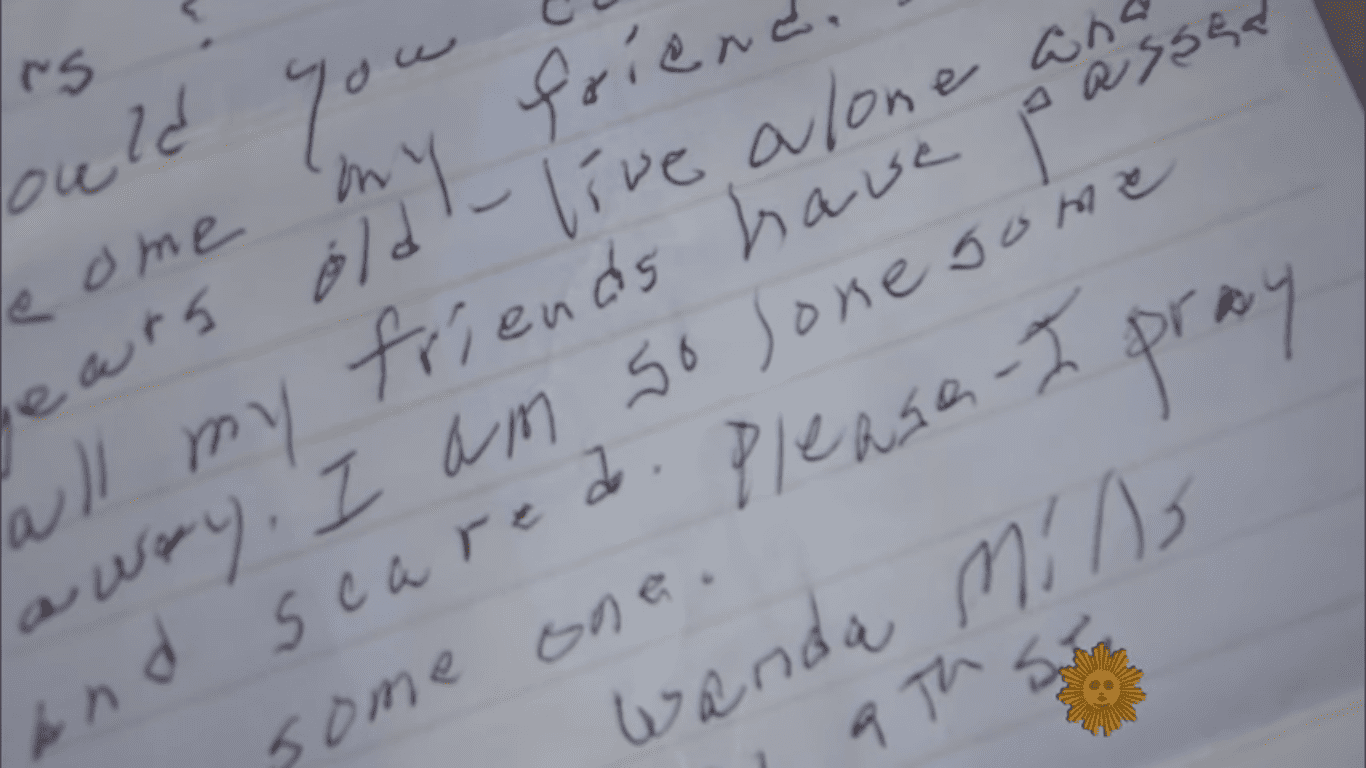 rs ?
ould you
e ome my friend.
ears old - live alone and
all my friends have passed
away. I am so lonesome
and scared. Please - I pray
some one.
Wanda Mills
9th St